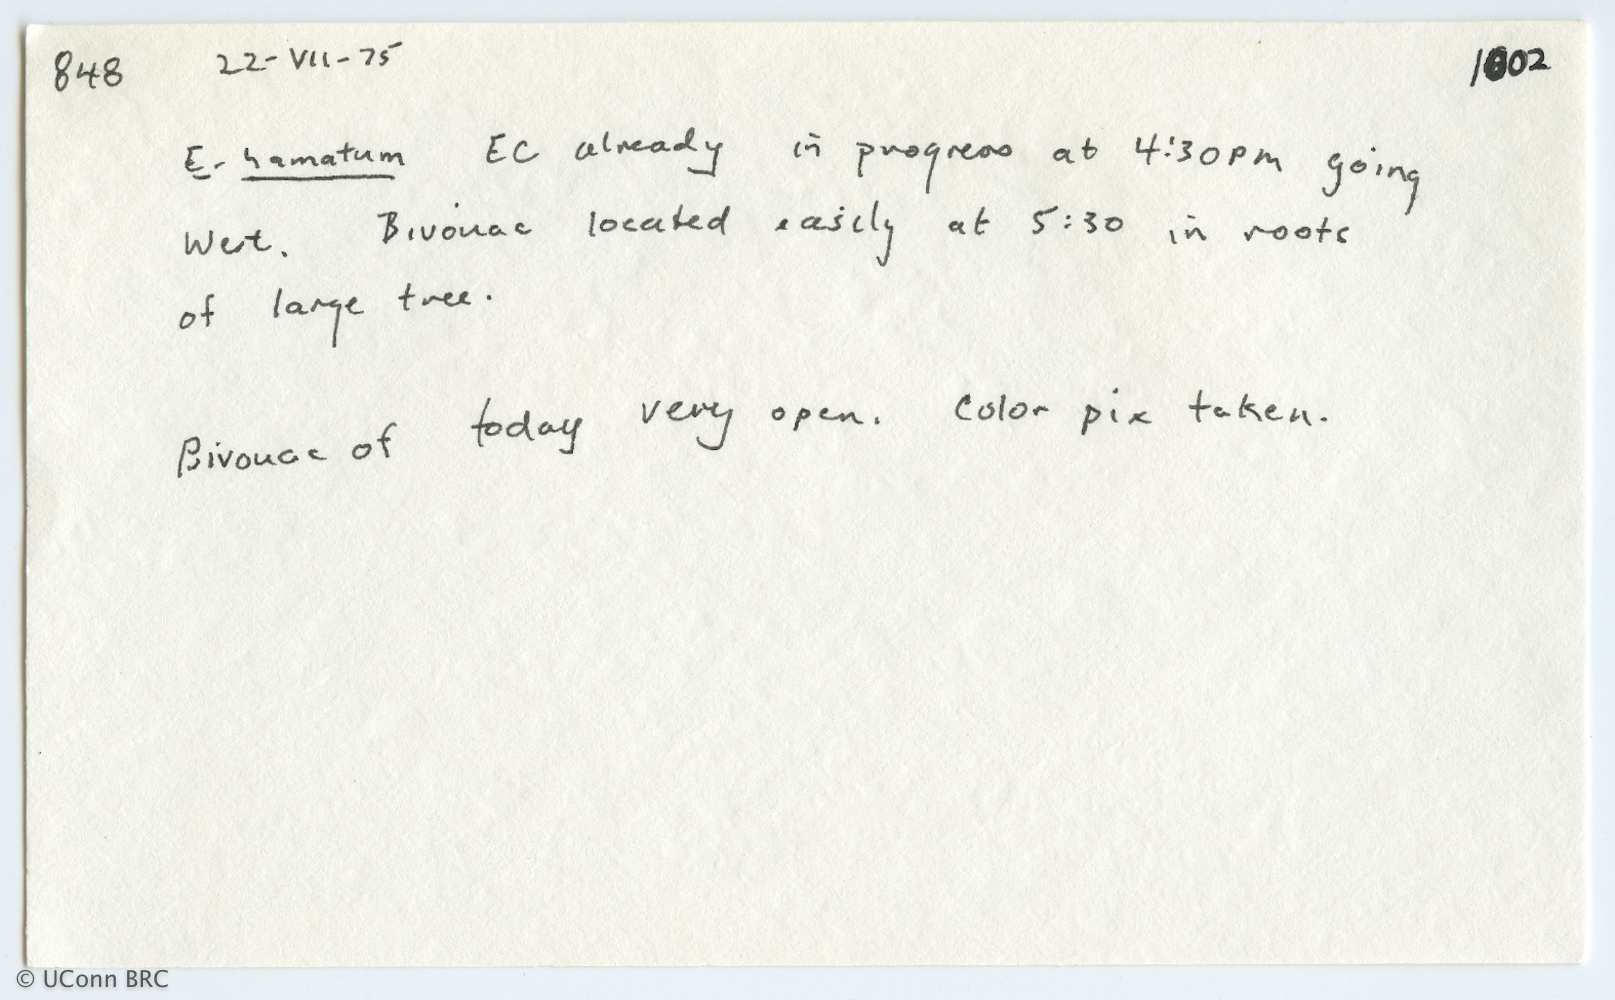 848 22-VII-75 1002
E. hamatum EC already in progress at 4:30pm going
West. Bivouac located easily at 5:30 in roots
of large tree.
Bivouac of today very open. Color pix taken.
© UConn BRC